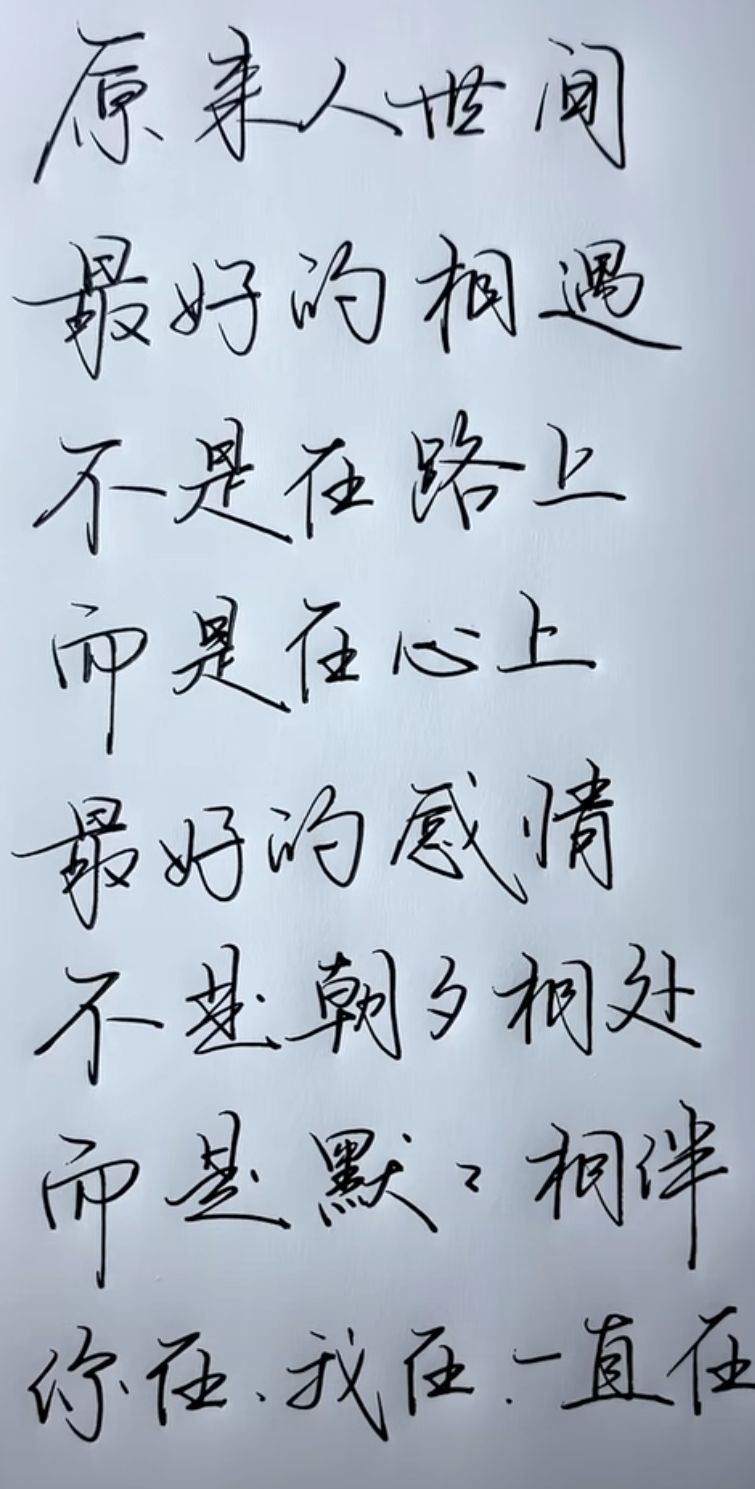 原来人世间
最好的相遇
不是在路上
而是在心上
最好的感情
不是朝夕相处
而是默々相伴
你在、我在、一直在